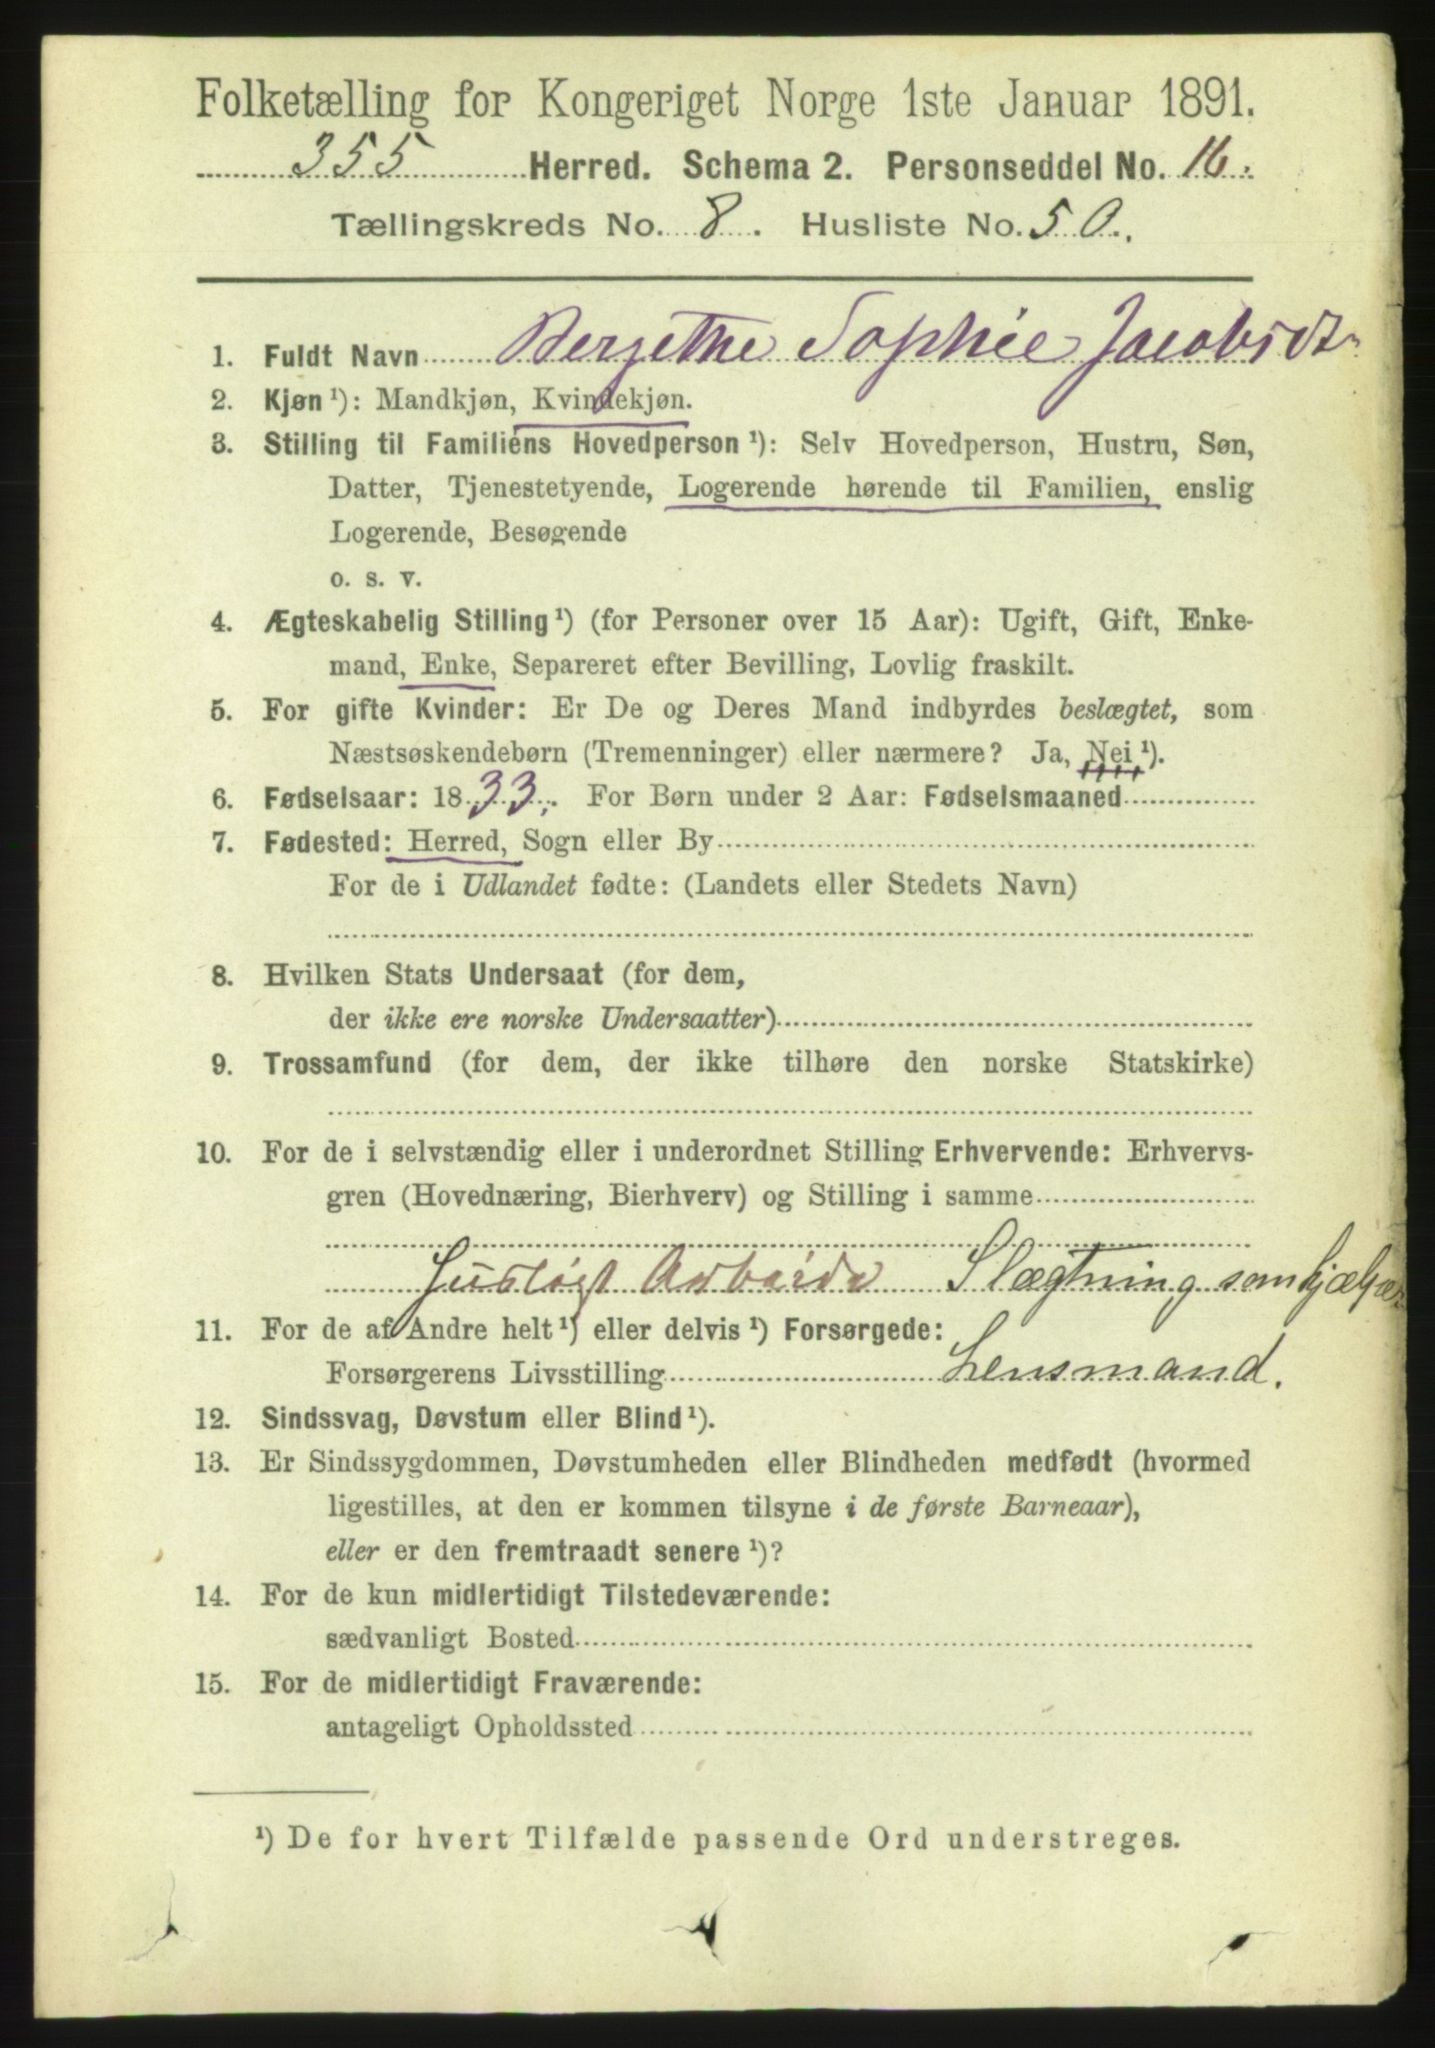 Folketælling for Kongeriget Norge 1ste Januar 1891.
355 Herred. Schema 2. Personseddel No. 16.
Tællingskreds No. 8. Husliste No. 50.
1. Fuldt Navn Bergethe Sophie Jacobsdt
2. Kjøn ¹): Mandkjøn, Kvindekjøn.
3. Stilling til Familiens Hovedperson ¹): Selv Hovedperson, Hustru, Søn,
Datter, Tjenestetyende, Logerende hørende til Familien, enslig
Logerende, Besøgende
o. s. v.
4. Ægteskabelig Stilling ¹) (for Personer over 15 Aar): Ugift, Gift, Enke-
mand, Enke, Separeret efter Bevilling, Lovlig fraskilt.
5. For gifte Kvinder: Er De og Deres Mand indbyrdes beslægtet, som
Næstsøskendebørn (Tremenninger) eller nærmere? Ja, Nei ¹).
6. Fødselsaar: 1833. For Børn under 2 Aar: Fødselsmaaned
7. Fødested: Herred, Sogn eller By
For de i Udlandet fødte: (Landets eller Stedets Navn)
8. Hvilken Stats Undersaat (for dem,
der ikke ere norske Undersaatter)
9. Trossamfund (for dem, der ikke tilhøre den norske Statskirke)
10. For de i selvstændig eller i underordnet Stilling Erhvervende: Erhvervs-
gren (Hovednæring, Bierhverv) og Stilling i samme
Husligt Arbeide Slægtning som hjælper
11. For de af Andre helt ¹) eller delvis ¹) Forsørgede:
Forsørgerens Livsstilling Lensmand.
12. Sindssvag, Døvstum eller Blind ¹).
13. Er Sindssygdommen, Døvstumheden eller Blindheden medfødt (hvormed
ligestilles, at den er kommen tilsyne i de første Barneaar),
eller er den fremtraadt senere ¹)?
14. For de kun midlertidigt Tilstedeværende:
sædvanligt Bosted
15. For de midlertidigt Fraværende:
antageligt Opholdssted
¹) De for hvert Tilfælde passende Ord understreges.